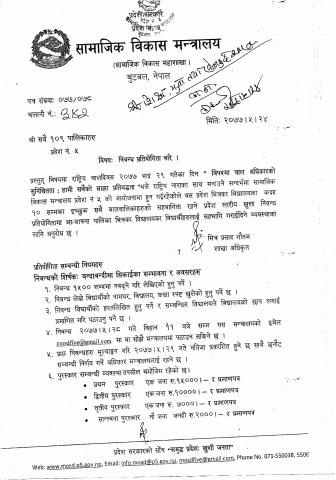 प्रदेश सरकार
प्रदेश नं. ५
सामाजिक विकास मन्त्रालय
(सामाजिक विकास महाशाखा)
बुटवल, नेपाल
पत्र संख्याः ०७७/०७८
चलानी नं.: ३४२
मितिः २०७७।५।२४
श्री सबै १०९ पालिकाहरु
प्रदेश नं. ५
विषयः निबन्ध प्रतियोगिता बारे ।
प्रस्तुत विषयमा राष्ट्रिय बालदिवस २०७७ भाद्र २९ गतेका दिन " विपदमा बाल अधिकारको
सुनिश्चितता : हामी सबैको साझा प्रतिबद्धता "भन्ने राष्ट्रिय नाराका साथ मनाउने सन्दर्भमा सामाजिक
विकास मन्त्रालय प्रदेश नं ५ को आयोजनामा हुन गईरहेकोले यस प्रदेश भित्रका विद्यालयका कक्षा
१० सम्मका इच्छुक सबै बालबालिकाहरुको सहभागिता रहने प्रदेश स्तरीय खुल्ला निबन्ध
प्रतियोगितामा आ-आफ्ना पालिका भित्रका विद्यालयका विद्यार्थीहरुलाई सहभागि गराईदिने व्यवस्थाका
लागि अनुरोध छ ।
मित्र प्रसाद गौतम
शाखा अधिकृत
प्रतियोगिता सम्बन्धी नियमहरु
निबन्धको शिर्षकः बन्दाबन्दीमा सिकाईका सम्भावना र अवसरहरु
१. निबन्ध १५०० शब्दमा नबढ्ने गरि लेखिएको हुनु पर्ने ।
२. निबन्ध लेख्ने विद्यार्थीको नामथर, विद्यालय, कक्षा स्पष्ट खुलेको हुनु पर्ने छ ।
३. निबन्ध विद्यार्थीको हस्तलिखित हुनु पर्ने र सम्बन्धित विद्यालयले विद्यालयको छाप लगाई
प्रमाणित गरि पठाउनु पर्ने छ ।
४. निबन्ध २०७७।५।२८ गते बिहान ११ बजे सम्म यस मन्त्रालयको इमेल
mosdfive@gmail.com मा वा सोझै मन्त्रालयमा पठाउन सकिने छ ।
५. प्राप्त निबन्धहरु मूल्याङ्कन गरि २०७७।५।२९ गते नतिजा प्रकाशित हुने छ साथै छनौट
सम्बन्धी निर्णय गर्ने अधिकार मन्त्रालयलाई रहने छ ।
६. पुरस्कार सम्बन्धी व्यवस्था तपसील बमोजिम रहेको छ।
• प्रथम पुरस्कार एक जना रु.१५०००।– र प्रमाणपत्र
• द्वितीय पुरस्कार एक जना रु.१००००।– र प्रमाणपत्र
• तृतीय पुरस्कार एक जना रु. ७०००।– र प्रमाणपत्र
• सान्त्वना पुरस्कार नौ जना जनही रु.२०००।– र प्रमाणपत्र
प्रदेश सरकारको सोच "समृद्ध प्रदेशः खुशी जनता"
Web: www.mosd.p5.gov.np, Email: info.mosd@p5.gov.np, mosdfive@gmail.com, Phone No. 071-550038, 5506